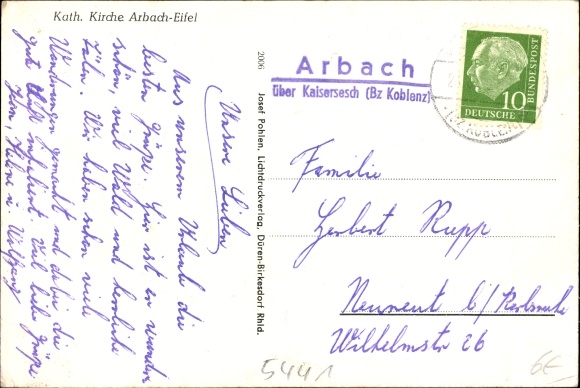 Kath. Kirche Arbach-Eifel
Unsere Lieben
Aus unserem Urlaub die
besten Grüße. Hier ist es wunder
schön, viel Wald und herrliche
Täler. Wir haben schon viele
Wanderungen gemacht und dabei die
gute Luft inhaliert. Viel liebe Grüße
Helene u. Wolfgang
2006 Josef Pohlen, Lichtdruckverlag, Düren-Birkesdorf Rhld.
Arbach
über Kaisersesch (Bz Koblenz)
10
DEUTSCHE
BUNDESPOST
(BZ KOBLENZ)
Familie
Herbert Rupp
Neureut b/ Karlsruhe
Wilhelmstr 26
5441
6E